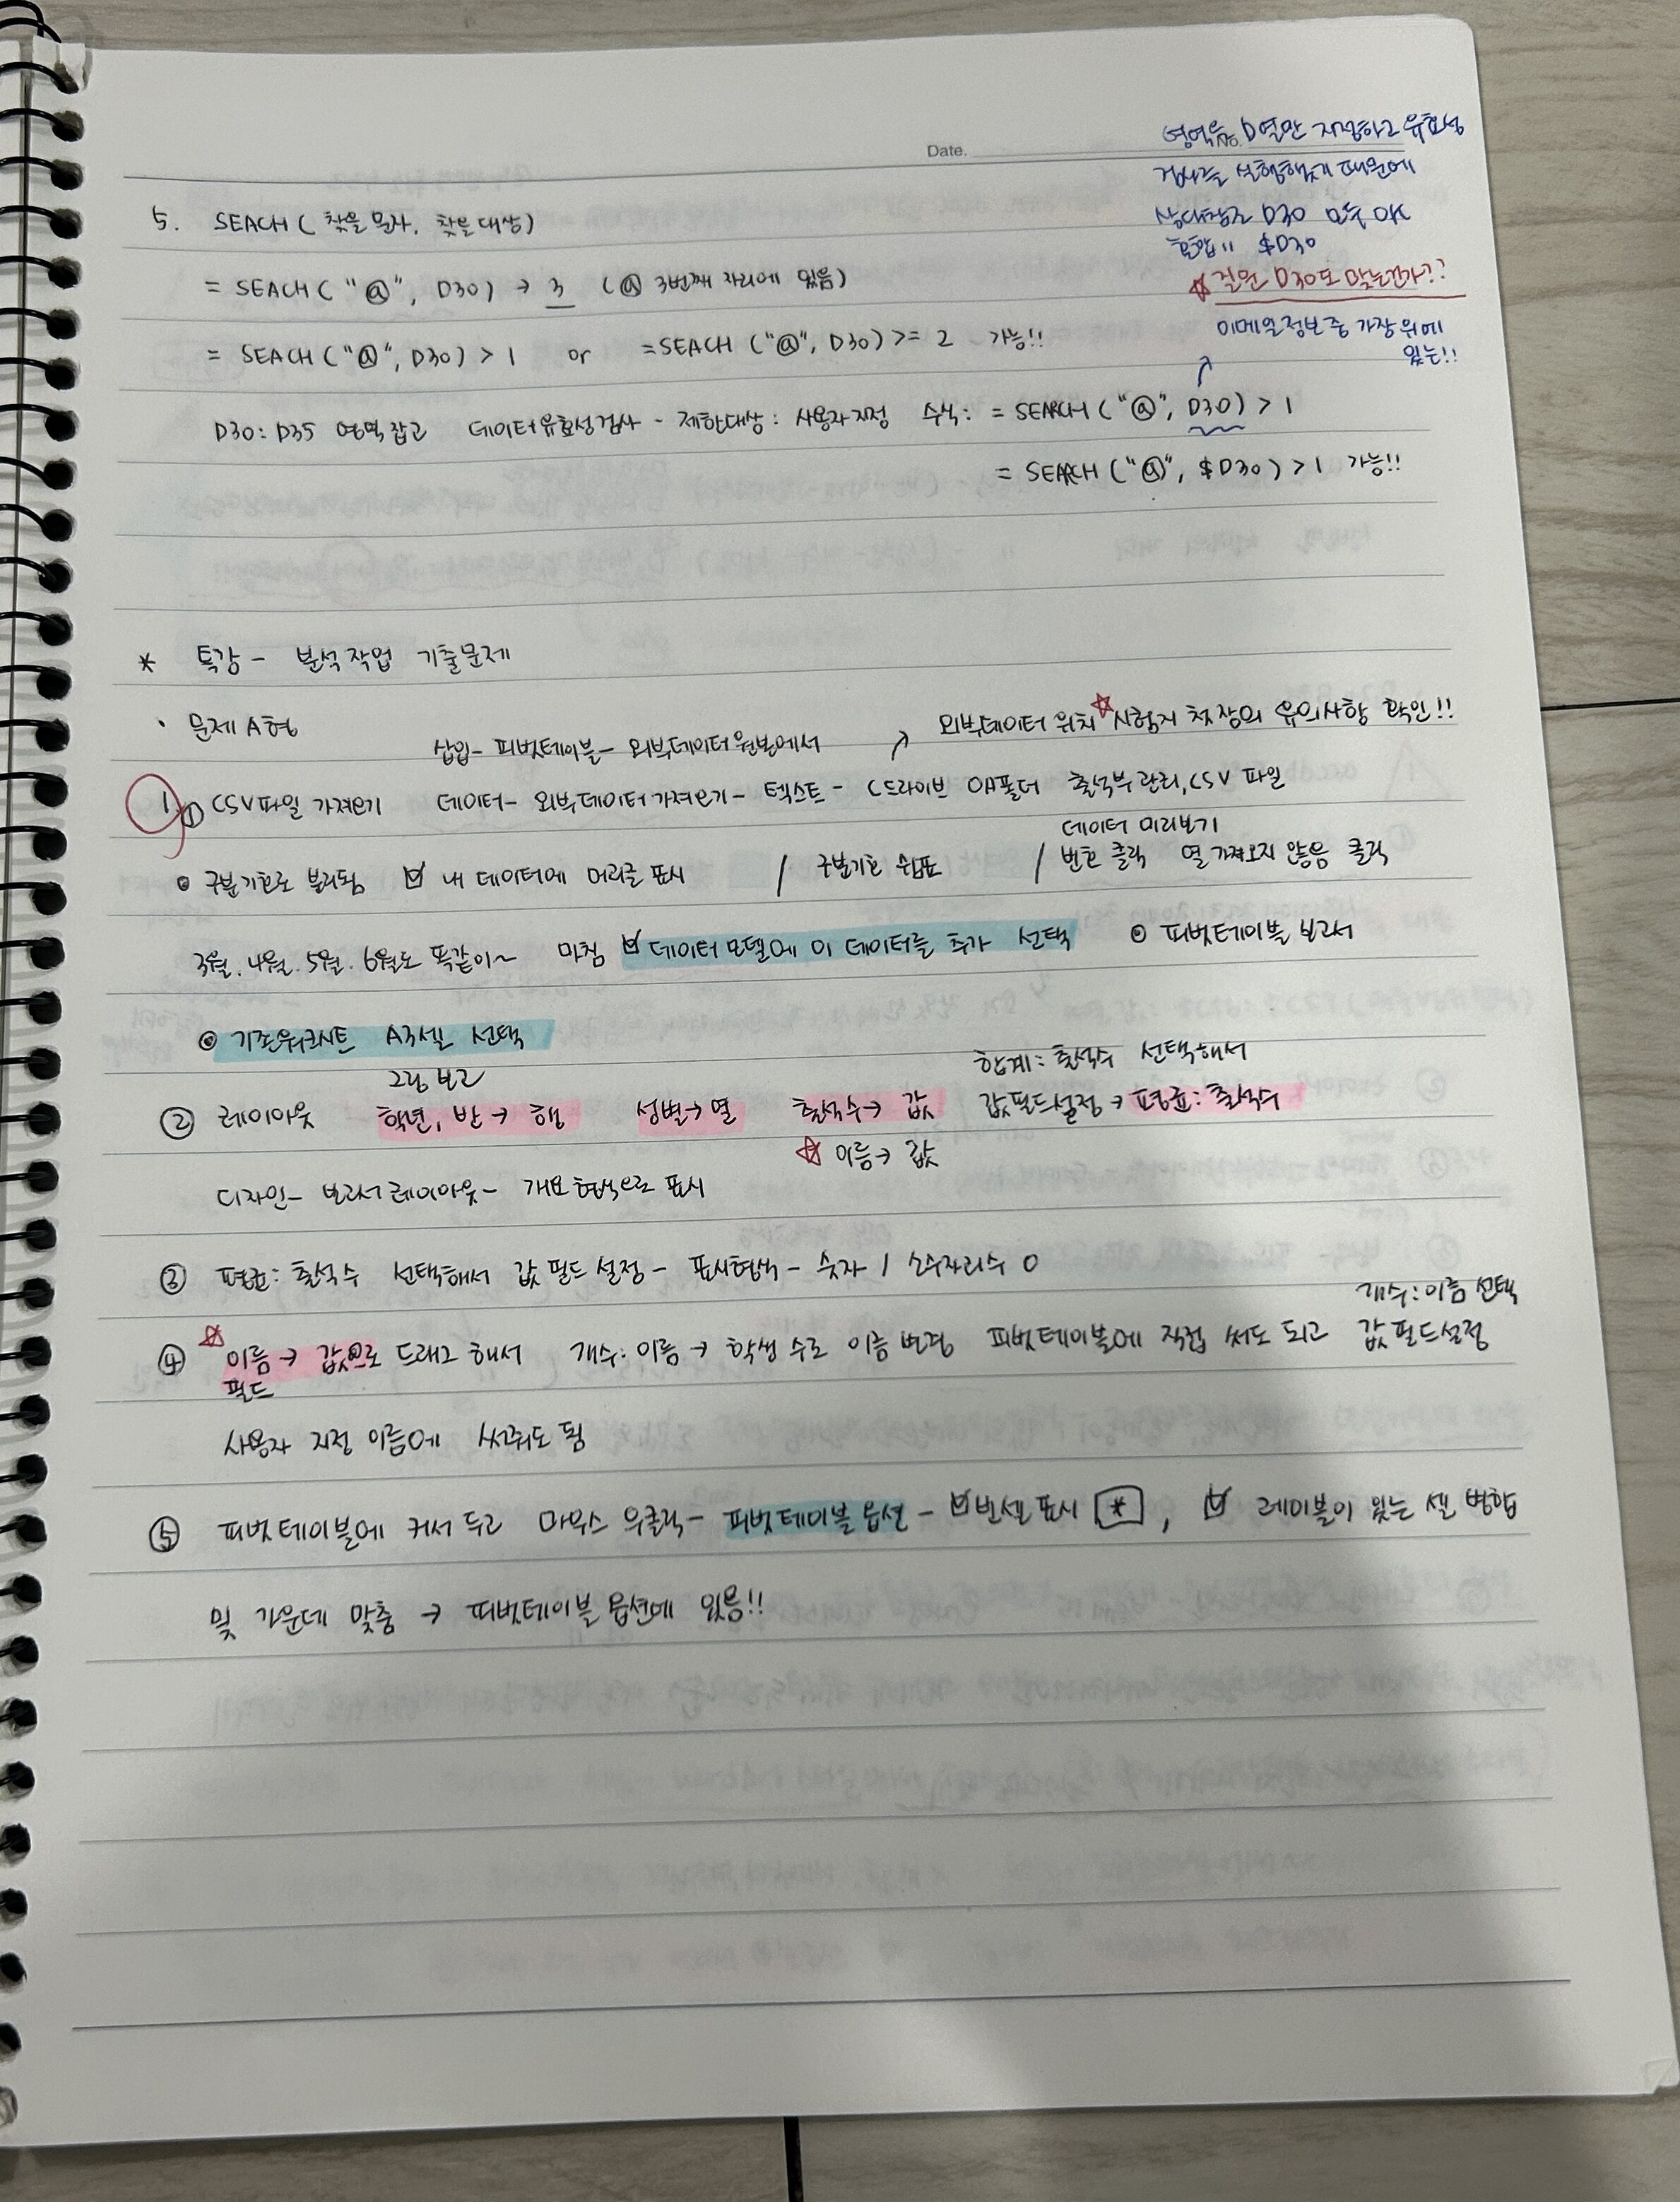 Date.
No.
영역을 D열만 지정하고 유효성
검사를 실행했기 때문에
상대참조 D30 모두 OK
혼합 " $D30
☆ 질문 D30도 맞는건가??
이메일정보 중 가장 위에
있는!!
5. SEACH ( 찾을 문자, 찾을 대상)
= SEACH ( "@", D30) → 3 (@ 3번째 자리에 있음)
= SEACH ("@", D30) > 1 or =SEACH ("@", D30) >= 2 가능!!
D30: D35 영역 잡고 데이터 유효성 검사 - 제한대상: 사용자 지정 수식: = SEARCH ("@", D30) > 1
= SEARCH ("@", $D30) > 1 가능!!
* 특강 - 분석작업 기출문제
· 문제 A형
삽입 - 피벗테이블 - 외부데이터 원본에서 ↗ 외부데이터 위치 ☆ 시험지 첫 장의 유의사항 확인!!
1. ① CSV파일 가져오기 데이터 - 외부데이터 가져오기 - 텍스트 - C드라이브 OA폴더 출석부관리.CSV 파일
⊙ 구분기호로 분리됨 ☑ 내 데이터에 머리글 표시 / 구분기호 쉼표 / 데이터 미리보기
번호 클릭 열 가져오지 않음 클릭
3월. 4월. 5월. 6월도 똑같이~ 마침 ☑ 데이터 모델에 이 데이터를 추가 선택 ⊙ 피벗테이블 보고서
⊙ 기존워크시트 A3셀 선택
그림 보고
합계: 출석수 선택해서
② 레이아웃 학년, 반 → 행 성별 → 열 출석수 → 값 값필드설정 → 평균: 출석수
☆ 이름 → 값
디자인 - 보고서 레이아웃 - 개요 형식으로 표시
③ 평균: 출석수 선택해서 값 필드 설정 - 표시형식 - 숫자 / 소수자리수 0
개수: 이름 선택
④ ☆ 이름 → 값으로 드래그 해서 개수: 이름 → 학생 수로 이름 변경 피벗테이블에 직접 써도 되고 값 필드설정
필드
사용자 지정 이름에 써줘도 됨
⑤ 피벗테이블에 커서 두고 마우스 우클릭 - 피벗테이블 옵션 - ☑ 빈 셀 표시 * , ☑ 레이블이 있는 셀 병합
및 가운데 맞춤 → 피벗테이블 옵션에 있음!!